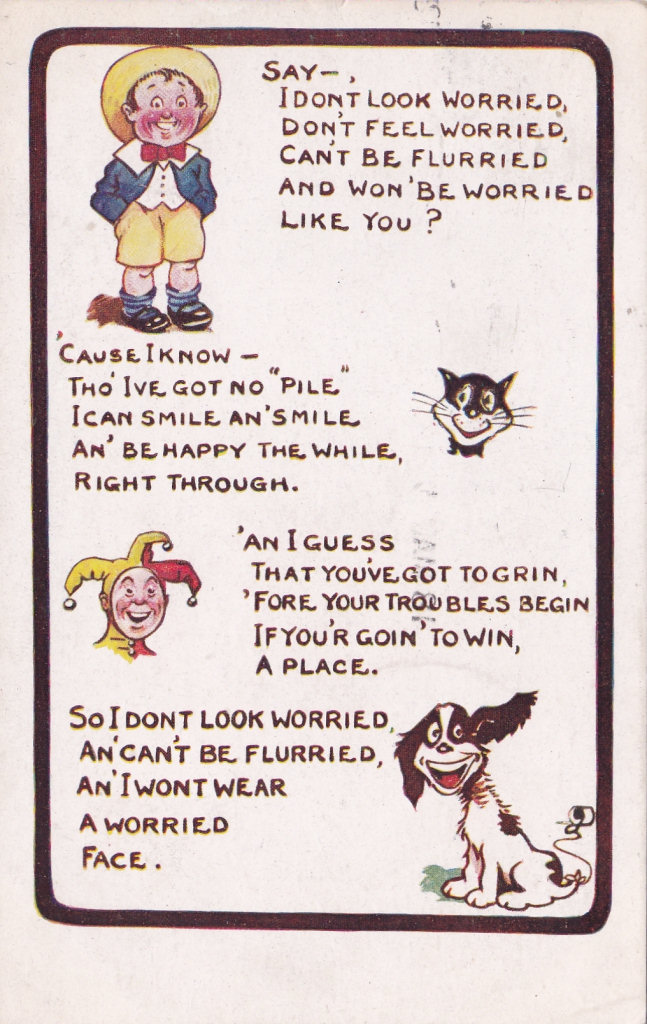 SAY—,
I DON'T LOOK WORRIED,
DON'T FEEL WORRIED,
CAN'T BE FLURRIED
AND WON'BE WORRIED
LIKE YOU?
'CAUSE I KNOW —
THO' IVE GOT NO "PILE"
I CAN SMILE AN' SMILE
AN' BE HAPPY THE WHILE,
RIGHT THROUGH.
'AN I GUESS
THAT YOU'VE GOT TO GRIN,
'FORE YOUR TROUBLES BEGIN
IF YOU'R GOIN' TO WIN,
A PLACE.
SO I DONT LOOK WORRIED,
AN' CAN'T BE FLURRIED,
AN' I WONT WEAR
A WORRIED
FACE.